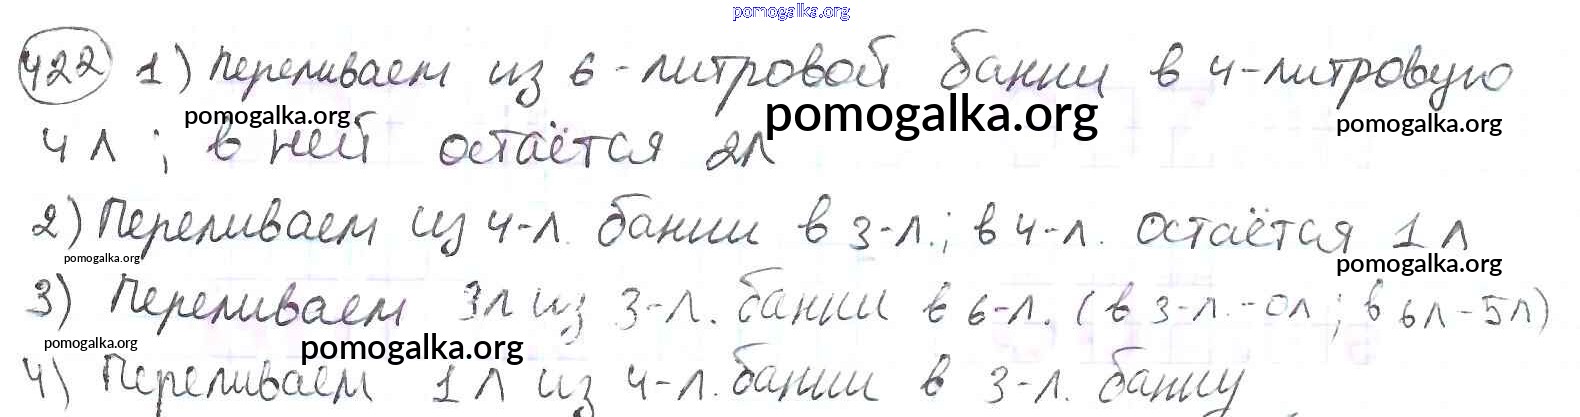 pomogalka.org
422 1) Переливаем из 6-литровой банки в 4-литровую
pomogalka.org pomogalka.org pomogalka.org
4 л ; в ней остаётся 2л
2) Переливаем из 4-л. банки в 3-л.; в 4-л. остаётся 1 л
pomogalka.org pomogalka.org
3) Переливаем 3л из 3-л. банки в 6-л. (в 3-л. - 0л ; в 6л - 5л)
pomogalka.org pomogalka.org
4) Переливаем 1 л из 4-л. банки в 3-л. банку